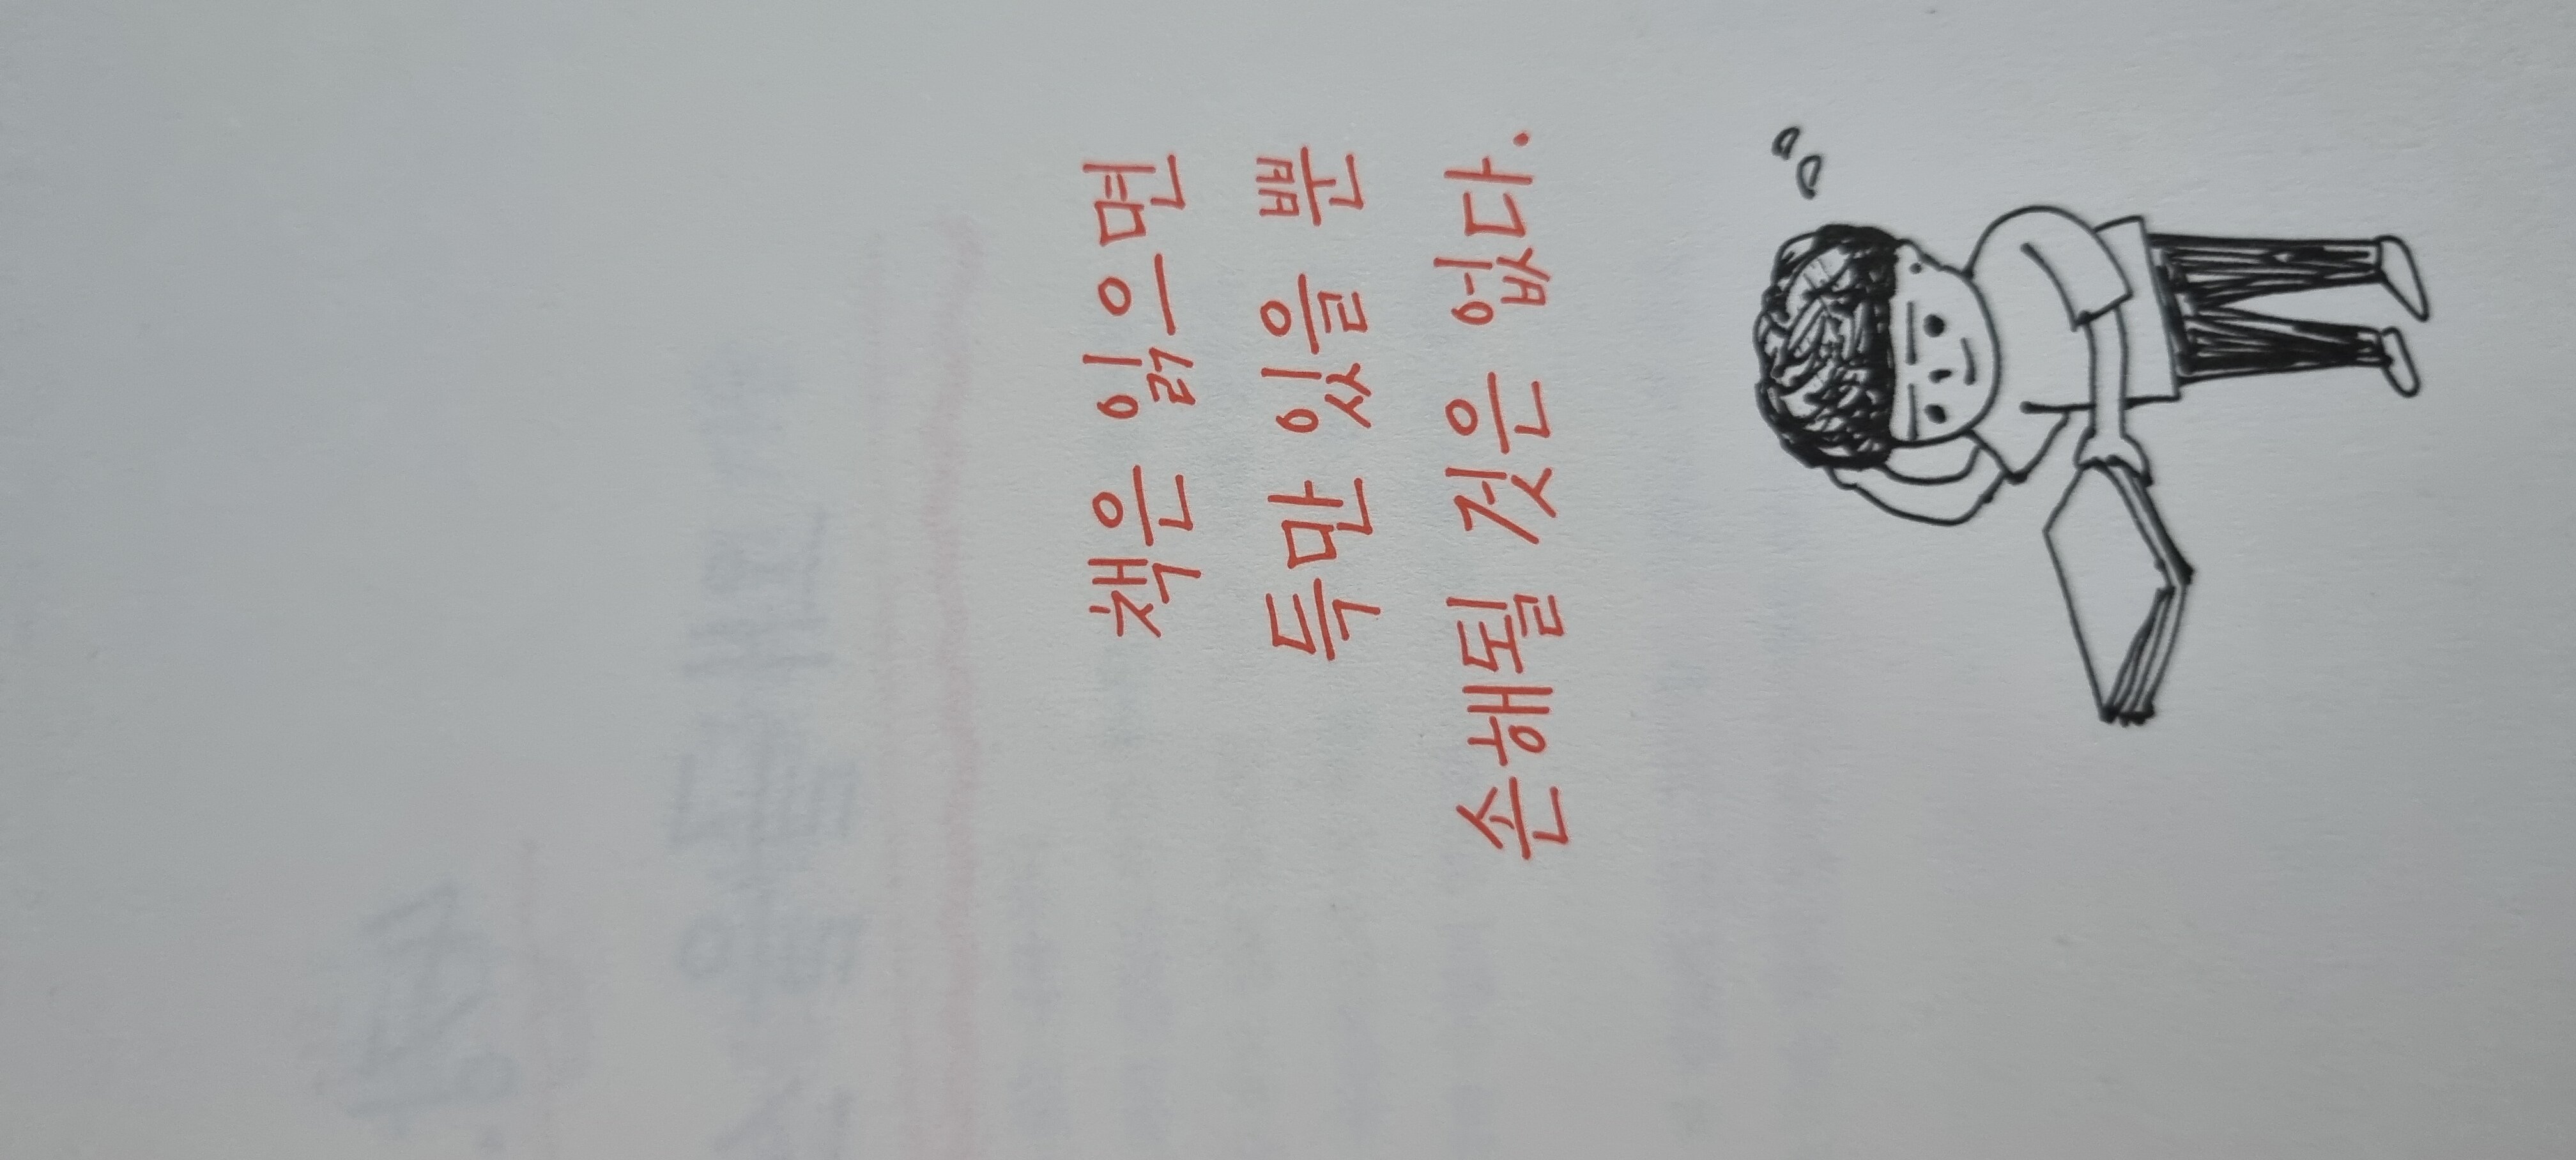 책은 읽으면
득만 있을 뿐
손해될 것은 없다.